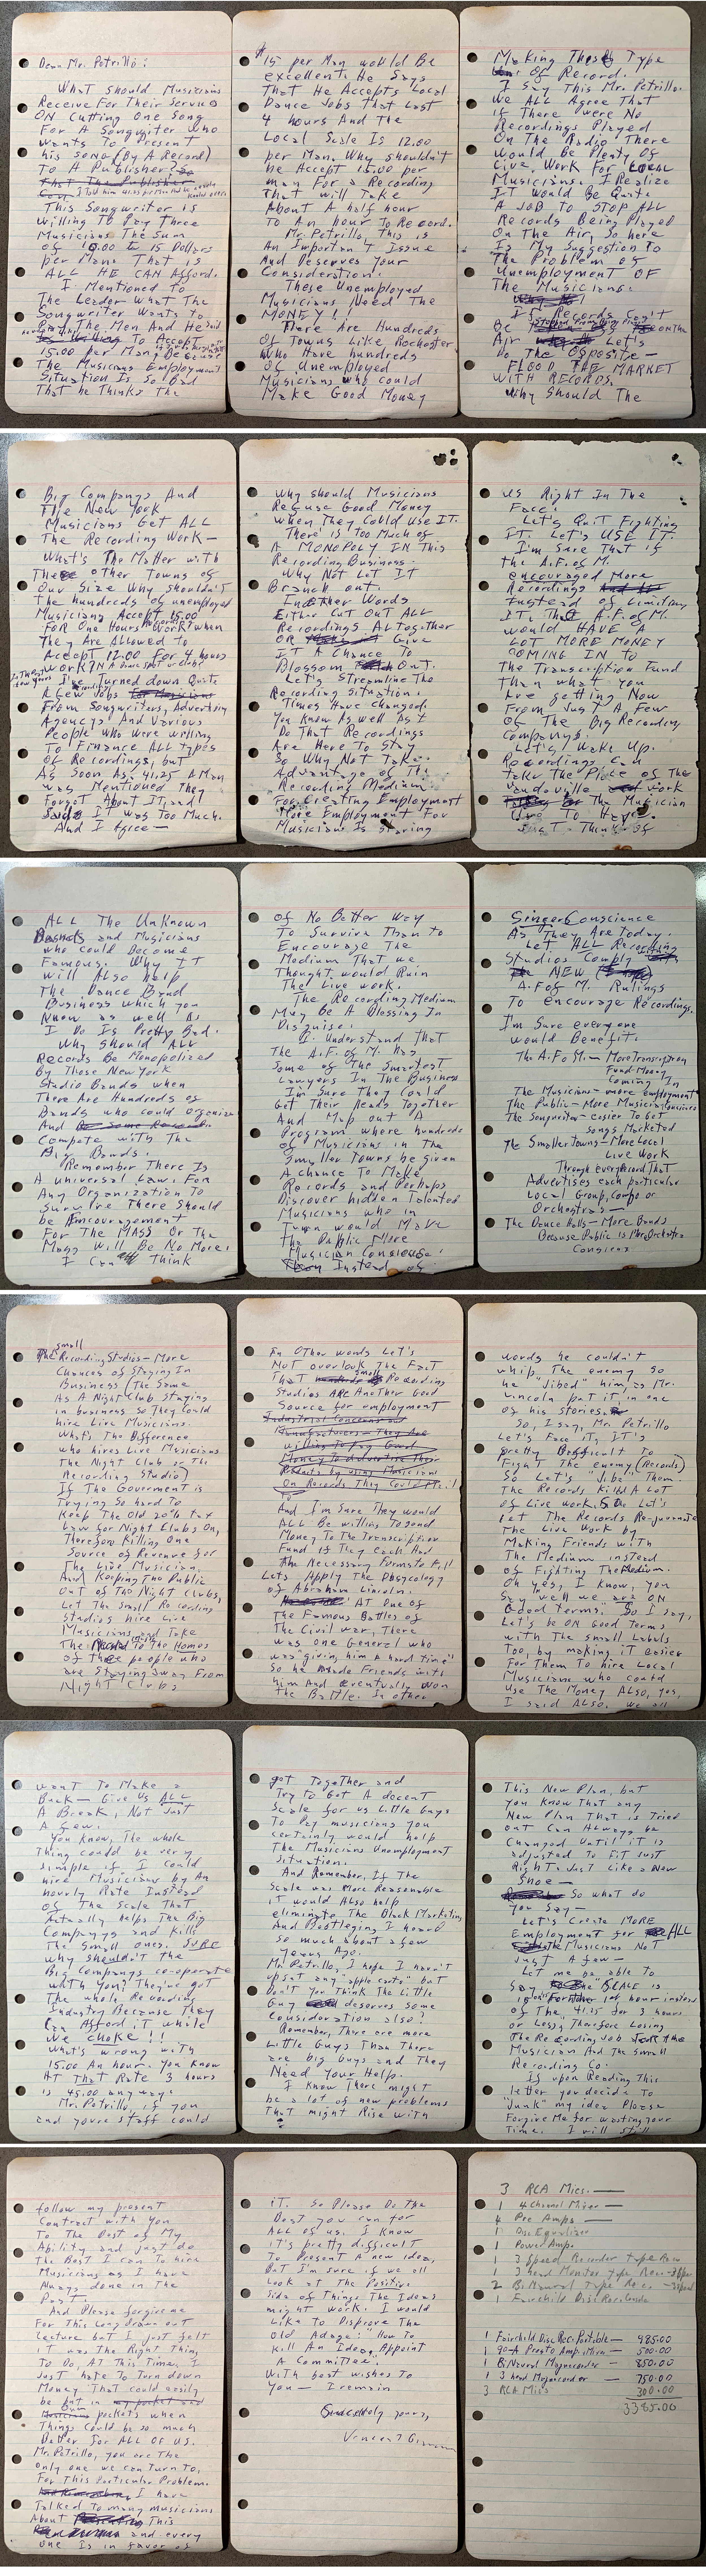 Dear Mr. Petrillo:
What Should Musicians
Receive For Their Services
ON Cutting One Song
For A Songwriter who
wants To Present
his song (By A Record)
To A Publisher?
This Songwriter is
Willing To Pay Three
Musicians The Sum
of 10.00 to 15 Dollars
per Man. That is
ALL HE CAN Afford.
I Mentioned to
The Leader what The
Songwriter Wants to
The Men And He said
To Accept
15.00 per Man, Because
The Musicians Employment
Situation Is So Bad
That he Thinks The
$15 per Man would Be
excellent. He Says
That He Accepts Local
Dance Jobs That Last
4 hours And The
Local Scale Is 12.00
per Man. Why shouldn't
he Accept 15.00 per
man For a Recording
That will Take
About A half hour
To An hour To Record.
Mr. Petrillo, This is
An Important Issue
And Deserves Your
Consideration.
These Unemployed
Musicians Need The
MONEY!!
There Are Hundreds
Of Towns Like Rochester
Who Have hundreds
Of Unemployed
Musicians who could
Make Good Money
Making These Type
Of Record.
I Say This Mr. Petrillo.
We ALL Agree That
if There were No
Recordings Played
On The Radio There
Would be Plenty Of
Live Work For Local
Musicians. I Realize
IT Would Be Quite
A JOB To STOP ALL
Records Being Played
On The Air, So here
Is My Suggestion To
The Problem Of
Unemployment OF
The Musicians:
If Records Can't
Be
Air Let's
Do The Opposite—
FLOOD THE MARKET
WITH RECORDS.
Why Should The
Big Companys And
The New York
Musicians Get ALL
The Recording Work—
What's The Matter with
These other Towns of
Our Size Why Shouldn't
The hundreds of unemployed
Musicians Accept 15.00
FOR One Hours Work when
They Are Allowed To
Accept 12.00 For 4 hours
Work?
In The Past few years
I've Turned down Quite
A Few Jobs
From Songwriters, Advertising
Agencys And Various
People who were willing
To Finance ALL Types
Of Recordings, but
As Soon As 41.25 A Man
was Mentioned They
Forgot About IT and
Said IT was Too Much.
And I Agree—
Why should Musicians
Refuse Good Money
When They Could Use IT.
There is Too Much of
A MONOPOLY IN This
Recording Business.
Why Not Let IT
Branch out
In Other Words
Either Cut Out ALL
Recordings Altogether
OR Give
IT A Chance To
Blossom Out.
Let's Streamline The
Recording Situation.
Times Have Changed.
You Know As well As I
Do That Recordings
Are Here To Stay
So Why Not Take
Advantage of This
Recording Medium
For Creating Employment
More Employment For
Musicians Is staring
us Right In The
Face.
Let's Quit Fighting
IT. Let's USE IT.
I'm Sure That if
the A.F. of M.
encouraged More
Recordings
Instead of Limiting
IT, The A.F. of M.
would HAVE A
LOT MORE MONEY
COMING IN to
The Transcription Fund
Than what you
Are getting Now
From Just A Few
Of The Big Recording
Companys.
Let's Wake Up.
Recordings Can
take The Place of The
Vaudeville work
The Musician
Use To Have.
Just Think of
ALL The Unknown
Bands and Musicians
who could become
Famous. Why IT
will Also help
The Dance Band
Business which you
Know as well As
I Do Is Pretty Bad.
Why Should ALL
Records Be Monopolized
By Those New York
Studio Bands when
There Are Hundreds of
Bands who could organize
And
Compete with The
Big Bands.
Remember There Is
A universal Law. For
Any Organization To
Survive There Should
be Encouragement
For The MASS Or The
Mass Will Be No More.
I Can Think
of No Better Way
To Survive Than to
Encourage The
Medium That we
Thought would Ruin
The Live Work.
The Recording Medium
May Be A Blessing In
Disguise.
I Understand That
The A.F. of M. Has
Some of The Smartest
Lawyers In The Business
I'm Sure They Could
Get Their heads Together
And Map out A
Program where hundreds
of Musicians in The
Smaller Towns be given
A Chance To Make
Records and Perhaps
Discover hidden Talented
Musicians who in
Turn would Make
The Public More
Musician Conscious
Instead of
Singer Conscience
As They Are Today.
Let ALL Recording
Studios Comply with
The NEW
A.F. of M. Rulings
To encourage Recordings.
I'm Sure everyone
would Benefit.
The A.F. of M.—More Transcription
Fund Money
Coming In
The Musicians—more employment
The Public—More Musician Conscious
The Songwriter—easier To Get
Songs Marketed
The Smaller Towns—More Local
Live Work
Through every Record That
Advertises each particular
Local Group, Combo or
Orchestras—
The Dance Halls—More Bands
Because Public is More Orchestra
Conscious
The small Recording Studios—More
Chances of Staying In
Business (The Same
As A Night Club Staying
in business so They Could
hire Live Musicians.
What's The Difference
who hires Live Musicians
The Night Club or The
Recording Studio)
If The Government is
Trying So hard to
Keep The Old 20% Tax
Law for Night Clubs On,
Therefore Killing One
Source of Revenue for
The Live Musician.
And Keeping The Public
Out of The Night Clubs,
Let The Small Recording
Studios hire Live
Musicians and Take
The Music To the Homes
of these people who
are Staying Away From
Night Clubs
In Other words Let's
NOT overlook The Fact
That small Recording
Studios ARE Another Good
Source for employment
Industrial Concerns and
Manufacturers—They Are
willing To Pay Good
Money To Advertise Their
Products by using Musicians
On Records They Could Mail
to
And I'm Sure They would
ALL Be willing To Send
Money To The Transcription
Fund If They each And
The Necessary Forms to Fill
Lets Apply The Phsycology
of Abraham Lincoln.
AT One of
The Famous Battles of
The Civil War, There
was One General who
was "giving him A hard time"
So he Made Friends with
him And eventually won
The Battle. In other
words he couldn't
whip The enemy so
he "Jibed" him, as Mr.
Lincoln put it, in one
of his stories.
So, I say, Mr. Petrillo
Let's Face it, IT'S
pretty Difficult To
Fight The enemy (Records)
So Let's "Jibe" Them.
The Records Killed A Lot
of Live work, So Let's
Let The Records Re-juvenate
The Live Work by
Making Friends with
The Medium instead
of Fighting The Medium.
Oh yes, I Know, you
Say well we are ON
Good terms. So I say,
Let's be ON Good Terms
with The small Labels
Too, by making it easier
For Them To hire Local
Musicians who could
Use The Money ALSO, yes,
I said ALSO, we all
want To Make a
Buck—Give Us ALL
A Break, Not Just
A few.
You Know, The whole
Thing could be very
simple if I could
hire Musicians by An
hourly Rate Instead
of The Scale That
Actually helps The Big
Companys and Kills
The Small ones. SURE
why shouldn't The
Big Companys co-operate
with you? They've got
The whole Recording
Industry Because They
Can Afford it while
We CHOKE!!
What's wrong with
15.00 An hour. You Know
AT That Rate 3 hours
is 45.00 anyway.
Mr. Petrillo, if you
and youre staff could
get Together and
Try To Get A decent
Scale for us Little Guys
To Pay musicians you
certainly would help
The Musicians Unemployment
Situation.
And Remember, If The
Scale was More Reasonable
iT would Also help
eliminate The Black Marketing
And Bootleging I heard
so much about a few
years Ago.
Mr. Petrillo, I hope I haven't
upset any "apple carts" but
Don't you Think The Little
Guy deserves some
Consideration also?
Remember, There are more
Little Guys Than There
are big Guys and They
Need Your Help.
I Know There might
be a lot of new problems
That might Rise with
This New Plan, but
you Know That any
New Plan That is Tried
out Can Always be
Changed Until iT is
adjusted To Fit Just
Right. Just Like a New
Shoe—
So what do
you Say—
Let's Create MORE
Employment for ALL
Musicians Not
Just A few—
Let me be able To
Say The "SCALE is
15.00 hour instead
of The 41.25 for 3 hours
or Less," Therefore Losing
The Recording Job for The
Musician And The small
Recording Co.
If upon Reading This
letter you decide To
"Junk" my idea Please
Forgive Me for wasting your
Time. I will still
follow my present
Contract with you
To The Best of My
Ability and Just do
The Best I Can To hire
Musicians as I have
Always done in The
Past.
And Please forgive me
For This Long drawn out
lecture but I Just felt
IT was The Right Thing
To Do, AT This Time. I
Just hate To Turn down
Money That could easily
be put in
pockets when
Things could be so much
Better for ALL OF US.
Mr. Petrillo, you are The
only one we can Turn To,
For This Particular Problem.
I have
Talked To many musicians
About This
and every
one Is in favor of
iT. So Please Do The
Best you can for
ALL of us. I Know
it's pretty difficult
To Present A new idea,
But I'm sure if we all
Look at The Positive
Side of Things The Ideas
might work. I would
Like to Disprove The
Old Adage: "How To
Kill An Idea, Appoint
A Committee".
With best wishes To
You—I remain
Sincerely yours,
Vincent
3 RCA Mics.—
1 4 Channel Mixer—
4 Pre Amps—
1 Disc Equalizer
1 Power Amp
1 3 Speed Recorder type
1 3 head Monitor type Rec—
2 BiNaural Type Rec.
1 Fairchild Disc Recorder
1 Fairchild Disc Rec. Portable—485.00
1 90-A Presto Amp. Mixer—500.00
1 BiNaural Magnecorder—850.00
1 3 head Magnecorder—750.00
3 RCA Mics 300.00
3385.00